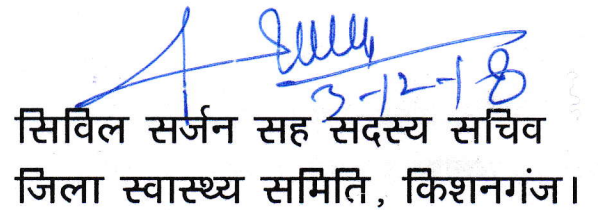 3-12-18
सिविल सर्जन सह सदस्य सचिव
जिला स्वास्थ्य समिति, किशनगंज।